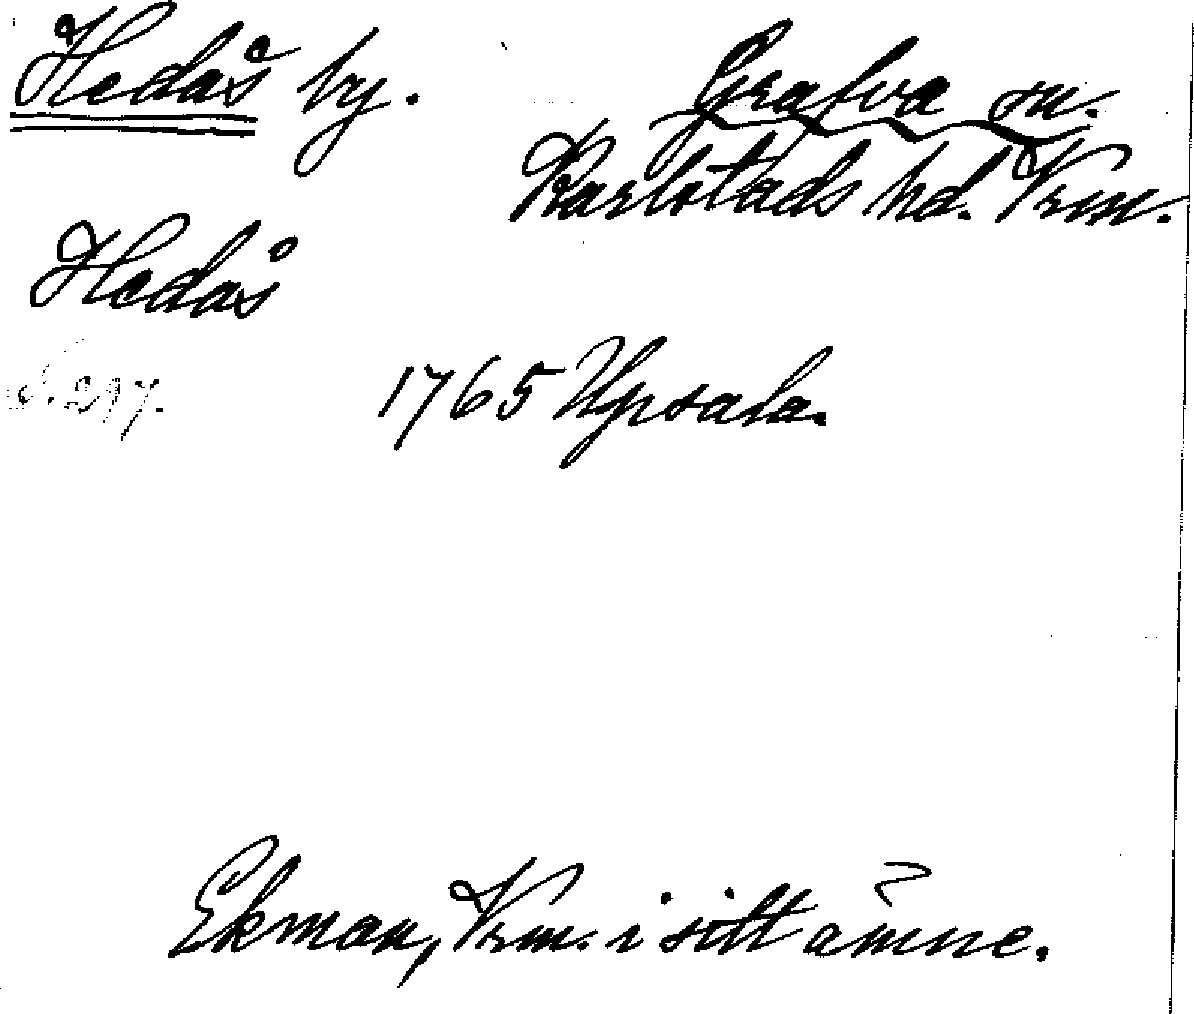 Hedås by.
Grafva sn.
Karlstads hd. Vrm.
Hedås
S. 217.
1765 Upsala.
Ekman, Vrm. i sitt ämne.